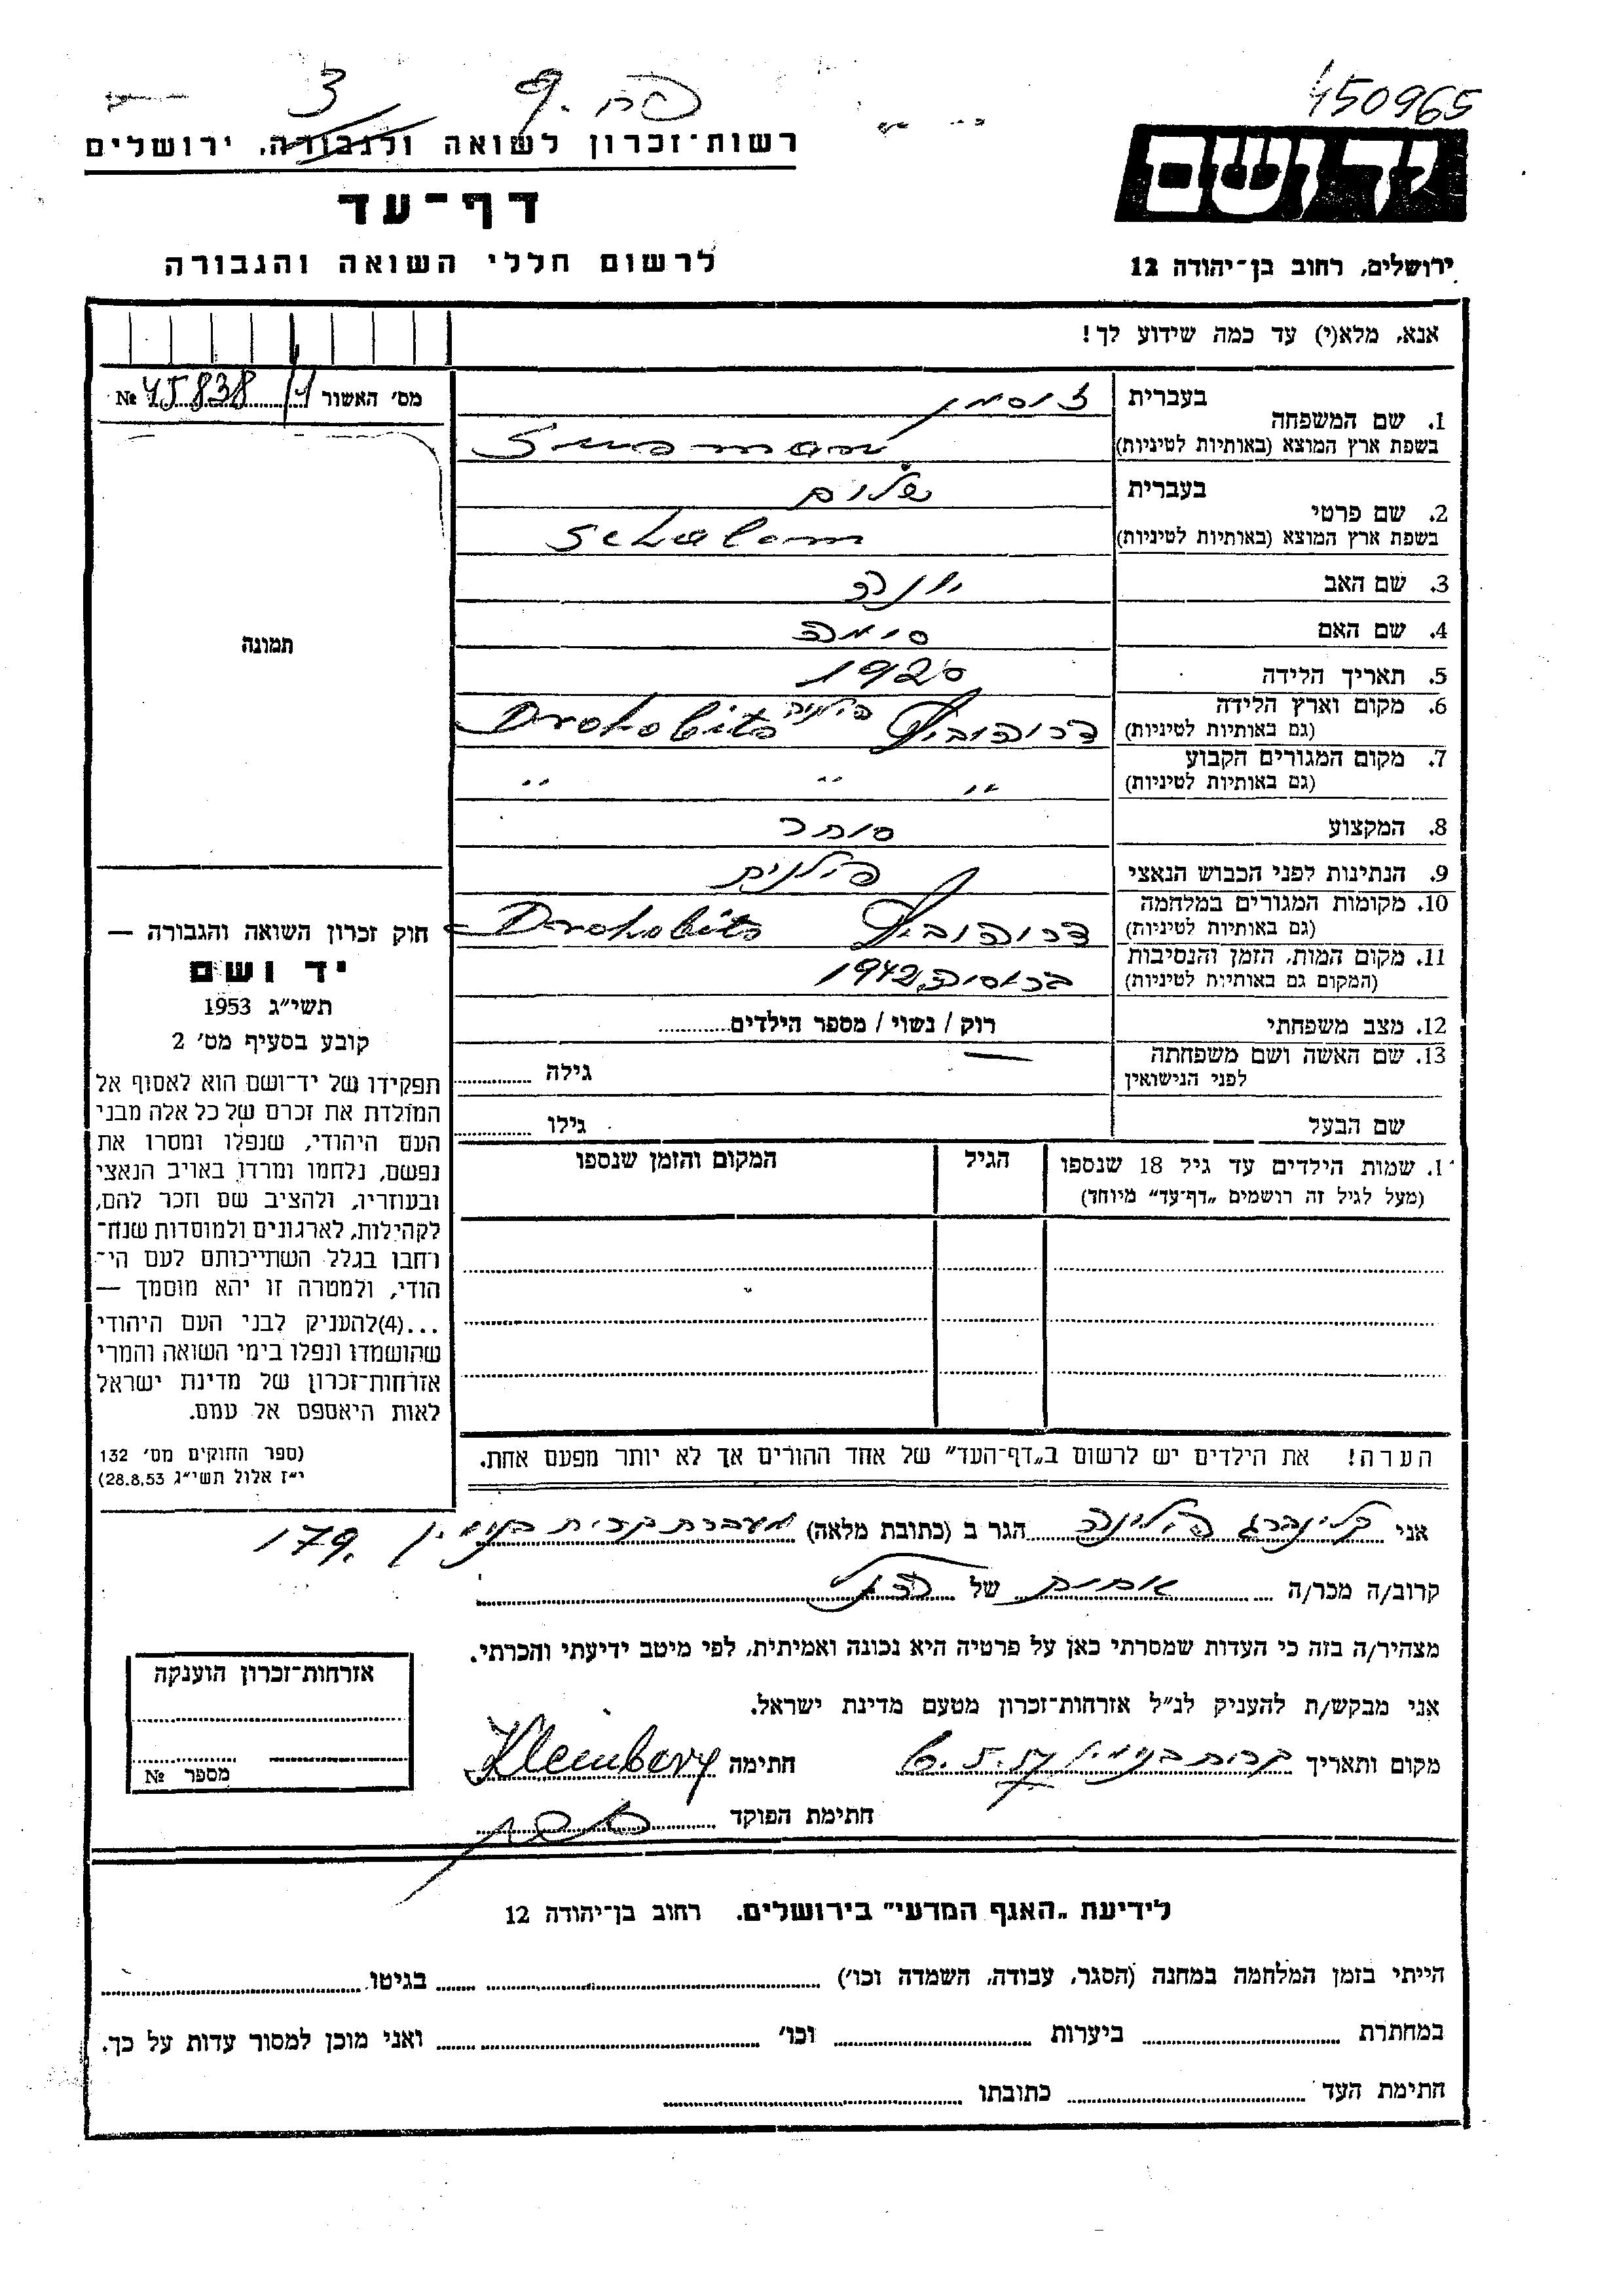 150965
פח. 9 3
רשות־זכרון לשואה ולגבורה, ירושלים
יד ושם
דף־עד
לרשום חללי השואה והגבורה
ירושלים, רחוב בן־יהודה 12
אנא, מלא(י) עד כמה שידוע לך!
מס׳ האשור № 45838/1
1. שם המשפחה
בעברית זוסמן
בשפת ארץ המוצא (באותיות לטיניות) Susman
2. שם פרטי
בעברית שלום
בשפת ארץ המוצא (באותיות לטיניות) Schalom
3. שם האב יונה
4. שם האם סימה
5. תאריך הלידה 1920
6. מקום וארץ הלידה
(גם באותיות לטיניות) דרוהוביץ פולניה Drohobits
7. מקום המגורים הקבוע
(גם באותיות לטיניות) ״ ״ ״
8. המקצוע סוחר
9. הנתינות לפני הכבוש הנאצי פולנית
10. מקומות המגורים במלחמה
(גם באותיות לטיניות) דרוהוביץ Drohobits
11. מקום המות, הזמן והנסיבות
(המקום גם באותיות לטיניות) 1942
12. מצב משפחתי רוק / נשוי / מספר הילדים
13. שם האשה ושם משפחתה
לפני הנישואין — גילה
שם הבעל גילו
1. שמות הילדים עד גיל 18 שנספו
(מעל לגיל זה רושמים „דף־עד״ מיוחד)
הגיל
המקום והזמן שנספו
הערה! את הילדים יש לרשום ב„דף־העד״ של אחד ההורים אך לא יותר מפעם אחת.
תמונה
חוק זכרון השואה והגבורה —
יד ושם
תשי״ג 1953
קובע בסעיף מס׳ 2
תפקידו של יד־ושם הוא לאסוף אל
המולדת את זכרם של כל אלה מבני
העם היהודי, שנפלו ומסרו את
נפשם, נלחמו ומרדו באויב הנאצי
ובעוזריו, ולהציב שם וזכר להם,
לקהילות, לארגונים ולמוסדות שנח־
רחבו בגלל השתייכותם לעם הי־
הודי, ולמטרה זו יהא מוסמך —
...(4)להעניק לבני העם היהודי
שהושמדו ונפלו בימי השואה והמרי
אזרחות־זכרון של מדינת ישראל
לאות היאספם אל עמם.
(ספר החוקים מס׳ 132
י״ז אלול תשי״ג 28.8.53)
אני קלינברג הלינה הגר ב (כתובת מלאה) מעברת קרית בנימין 179.
קרוב/ה מכר/ה אחות של הנ״ל
מצהיר/ה בזה כי העדות שמסרתי כאן על פרטיה היא נכונה ואמיתית, לפי מיטב ידיעתי והכרתי.
אני מבקש/ת להעניק לנ״ל אזרחות־זכרון מטעם מדינת ישראל.
מקום ותאריך קרית בנימין 6.5.57 חתימה Kleinberg
חתימת הפוקד
אזרחות־זכרון הוענקה
מספר №
לידיעת „האגף המדעי״ בירושלים, רחוב בן־יהודה 12
הייתי בזמן המלחמה במחנה (הסגר, עבודה, השמדה וכו׳) בגיטו
במחתרת ביערות וכו׳ ואני מוכן למסור עדות על כך.
חתימת העד כתובתו